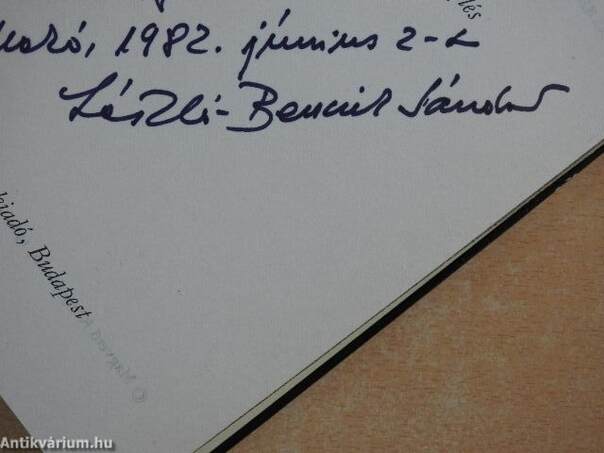 lés
1982. június 2-
László-Bencsik Sándor
kiadó, Budapest
Antikvárium.hu